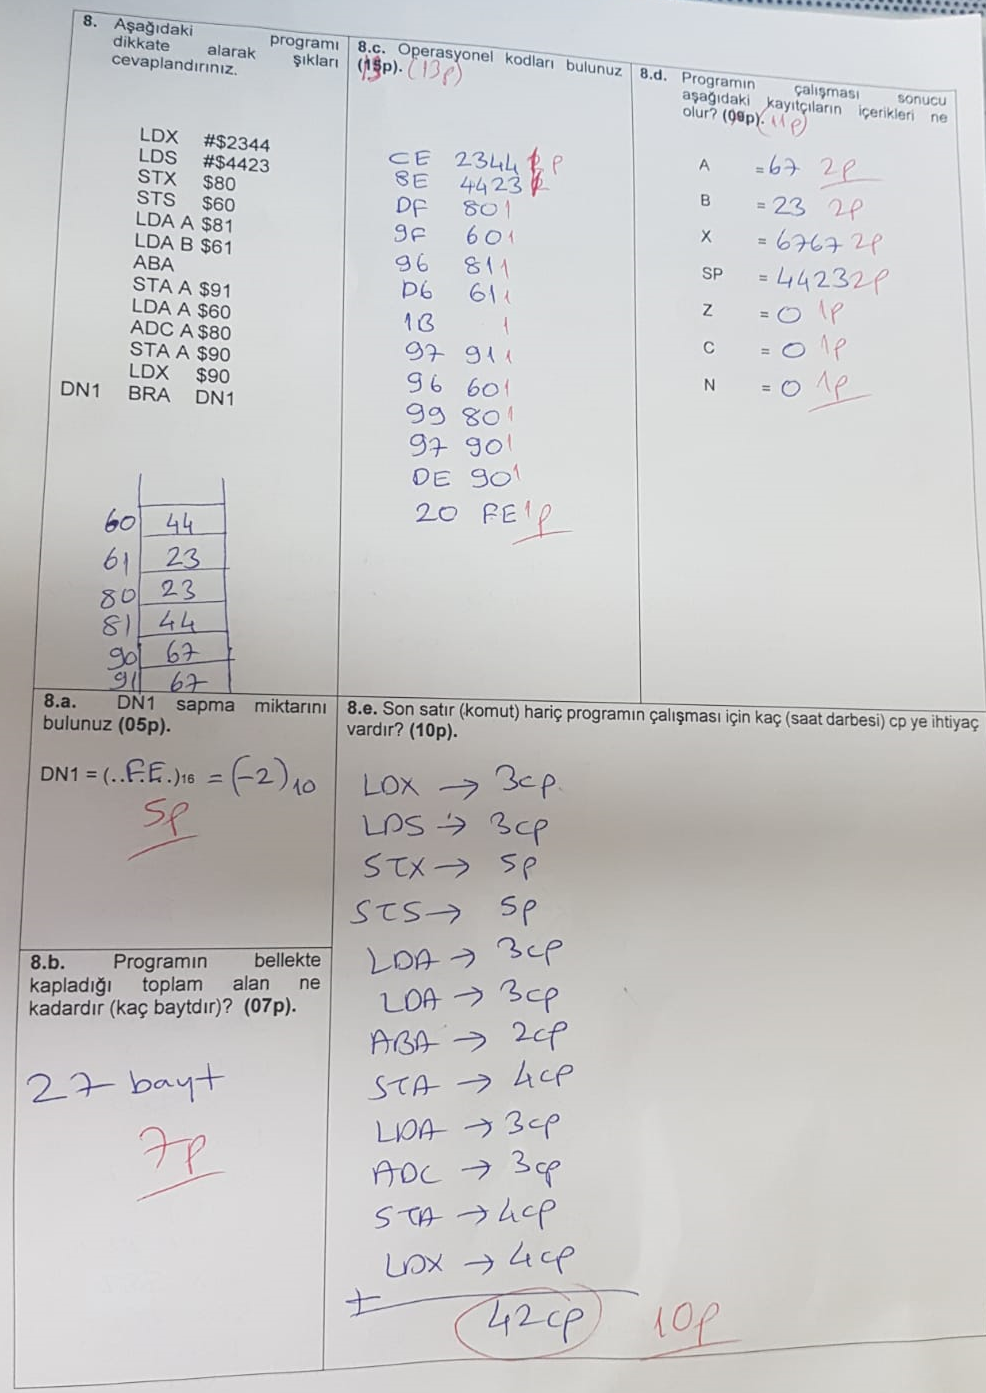 8. Aşağıdaki programı
dikkate alarak şıkları
cevaplandırınız.
LDX #$2344
LDS #$4423
STX $80
STS $60
LDA A $81
LDA B $61
ABA
STA A $91
LDA A $60
ADC A $80
STA A $90
LDX $90
DN1 BRA DN1
60 44
61 23
80 23
81 44
90 67
91 67
8.c. Operasyonel kodları bulunuz
(13p). (13p)
CE 2344 1p
8E 4423 1
DF 80 1
9F 60 1
96 81 1
D6 61 1
1B 1
97 91 1
96 60 1
99 80 1
97 90 1
DE 90 1
20 FE 1p
8.d. Programın çalışması sonucu
aşağıdaki kayıtçıların içerikleri ne
olur? (09p). (11p)
A = 67 2p
B = 23 2p
X = 6767 2p
SP = 4423 2p
Z = 0 1p
C = 0 1p
N = 0 1p
8.a. DN1 sapma miktarını
bulunuz (05p).
DN1 = (..F.E.)16 = (-2)10
5p
8.b. Programın bellekte
kapladığı toplam alan ne
kadardır (kaç baytdır)? (07p).
27 bayt
7p
8.e. Son satır (komut) hariç programın çalışması için kaç (saat darbesi) cp ye ihtiyaç
vardır? (10p).
LDX → 3cp.
LDS → 3cp
STX → 5p
STS → 5p
LDA → 3cp
LDA → 3cp
ABA → 2cp
STA → 4cp
LDA → 3cp
ADC → 3cp
STA → 4cp
LDX → 4cp
+
42cp 10p